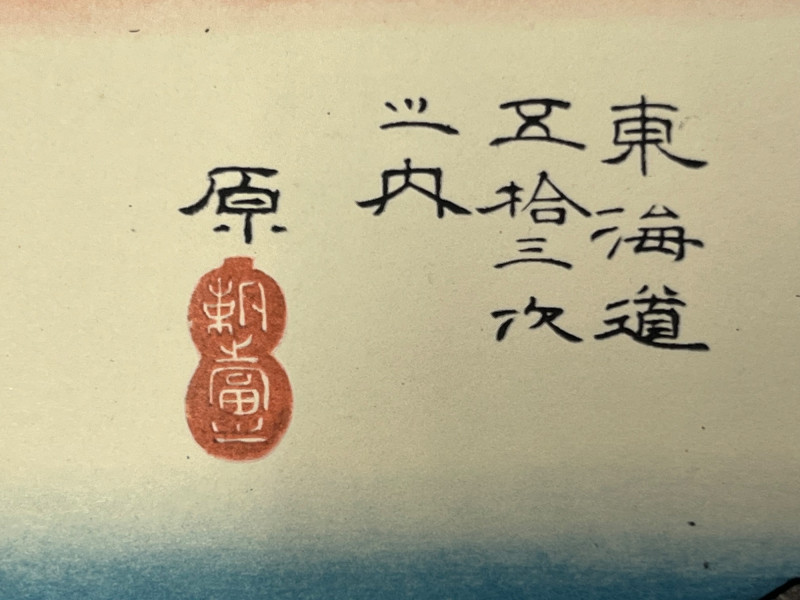 東海道
五拾三次
之内
原
朝之冨士